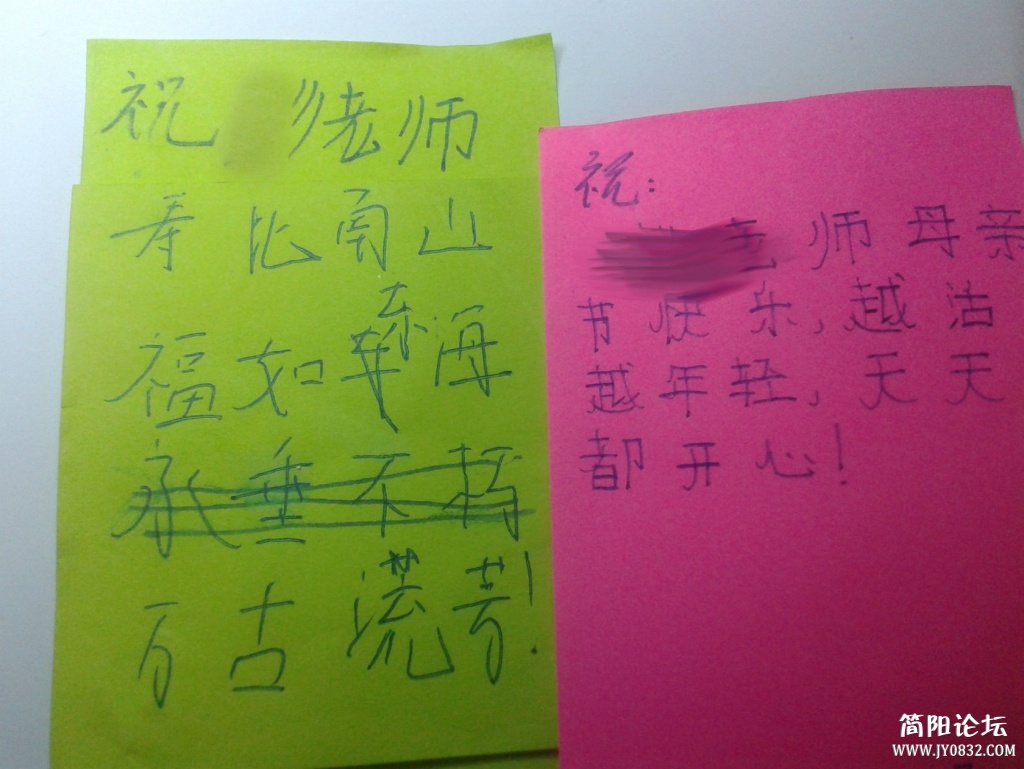 祝 老师
寿比南山
福如东海
永垂不朽
百古流芳!
祝:
老师母亲
节快乐,越活
越年轻,天天
都开心!
简阳论坛
www.JY0832.com